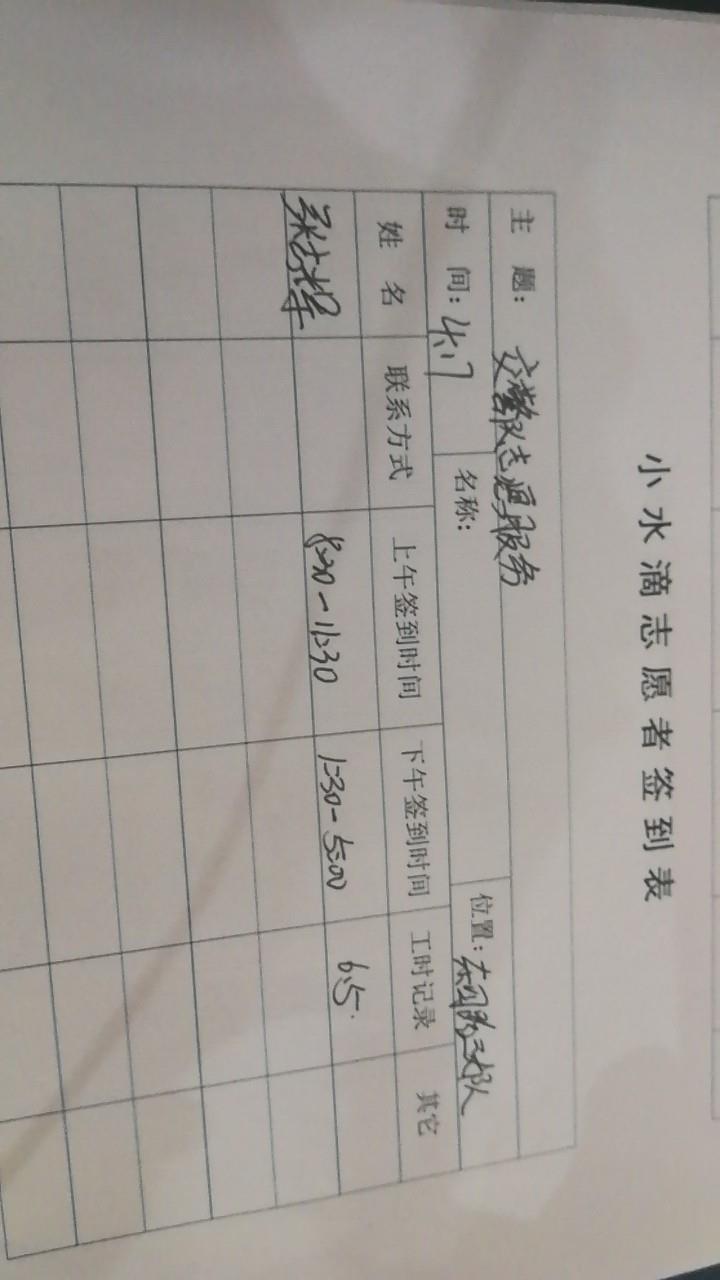 小水滴志愿者签到表
主 题： 交警队志愿服务
时 间：4.17 名称： 位置：东风路三大队
姓 名 联系方式 上午签到时间 下午签到时间 工时记录 其它
8:30-11:30 1:30-5:00 6.5.